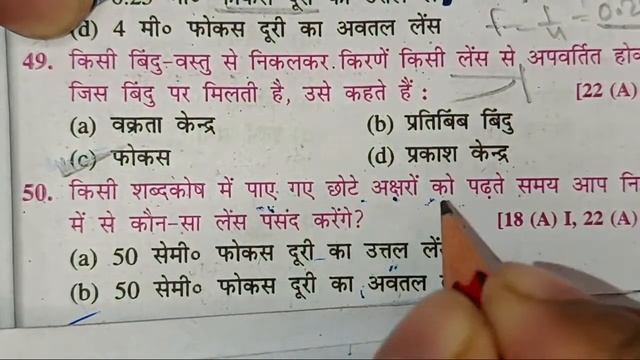 (d) 4 मी० फोकस दूरी का अवतल लेंस
49. किसी बिंदु-वस्तु से निकलकर किरणें किसी लेंस से अपवर्तित
जिस बिंदु पर मिलती है, उसे कहते हैं : [22 (A)
(a) वक्रता केन्द्र (b) प्रतिबिंब बिंदु
(c) फोकस (d) प्रकाश केन्द्र
50. किसी शब्दकोष में पाए गए छोटे अक्षरों को पढ़ते समय आप
में से कौन-सा लेंस पसंद करेंगे? [18 (A) I, 22 (A)
(a) 50 सेमी० फोकस दूरी का उत्तल
(b) 50 सेमी० फोकस दूरी का अवतल